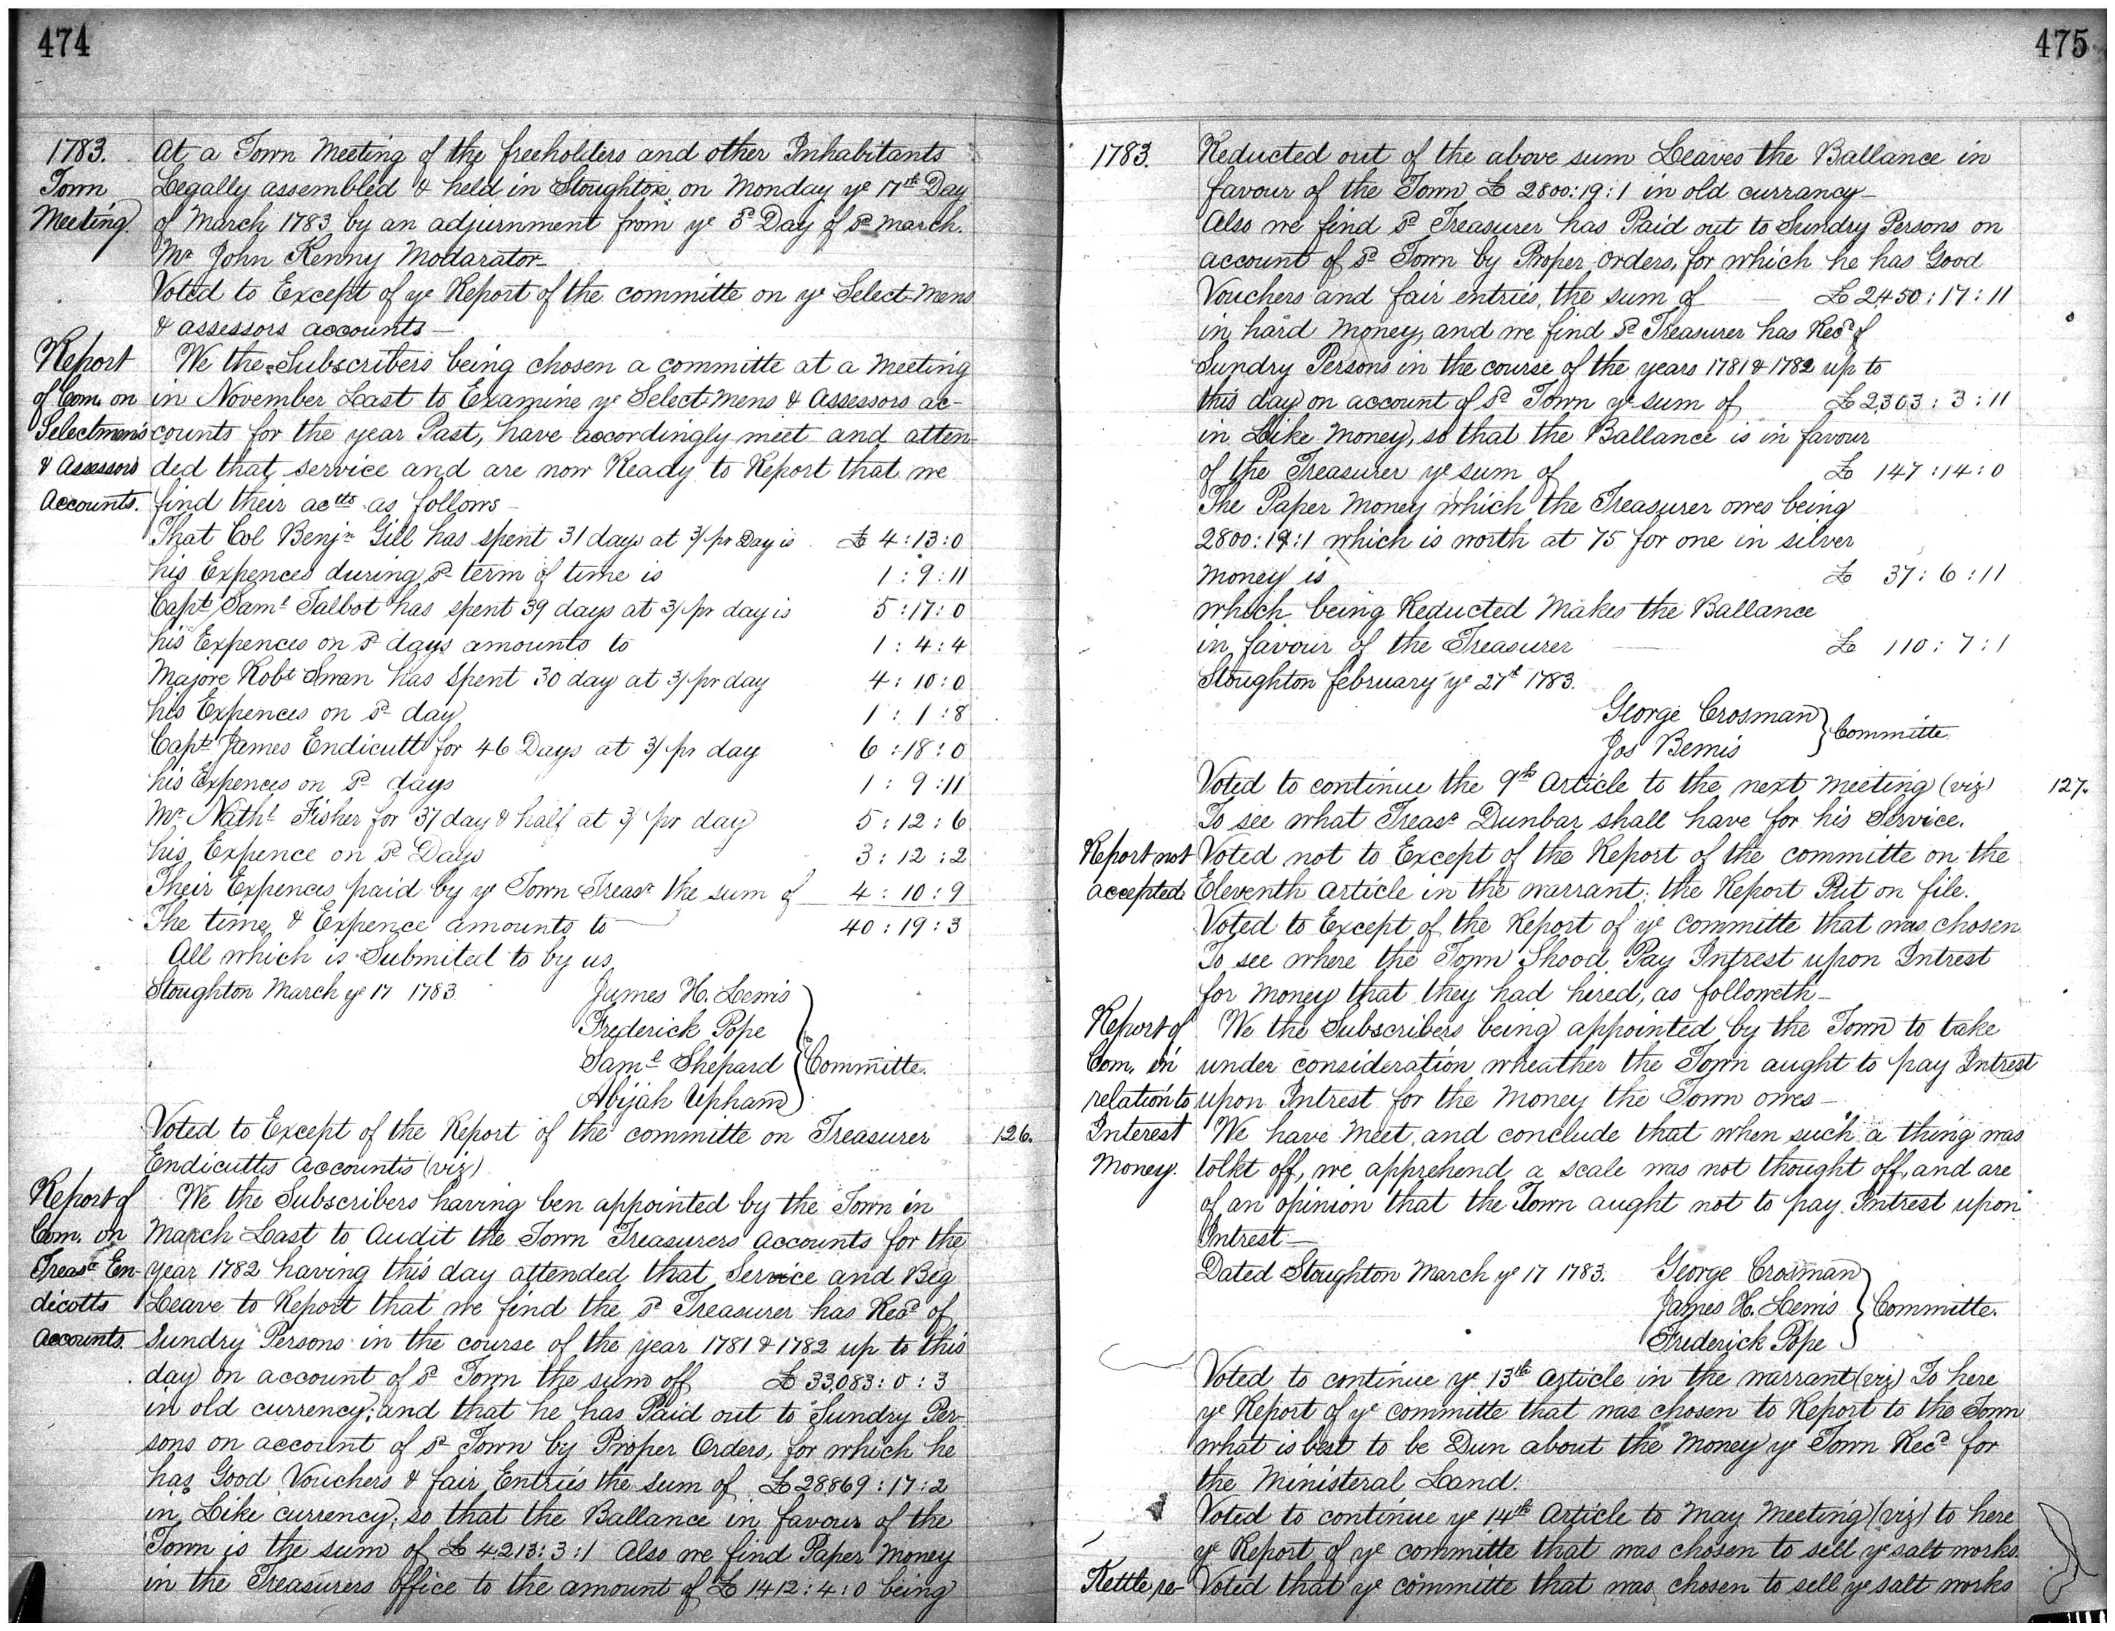 474
1783. At a Town Meeting of the freeholders and other Inhabitants
Town Legally assembled & held in Stoughton on Monday ye 17th Day
Meeting. of March 1783 by an adjurnment from ye 3d Day of sd March.
Mr John Kenny Modarator
Voted to Except of ye Report of the committe on ye Select Mens
& assessors accounts
Report We the Subscribers being chosen a committe at a Meeting
of Com. on in November Last to Examine ye Select Mens & Assessors ac-
Selectmen's counts for the year Past, have accordingly meet and atten-
& Assessors ded that service and are now Ready to Report that we
Accounts. find their actts as follows
That Col Benjn Gill has spent 31 days at 3/ pr Day is £ 4:13:0
his Expences during sd term of time is 1:9:11
Capt Saml Talbot has spent 39 days at 3/ pr day is 5:17:0
his Expences on sd days amounts to 1:4:4
Majore Robt Swan has spent 30 day at 3/ pr day 4:10:0
his Expences on sd day 1:1:8
Capt James Endicutt for 46 Days at 3/ pr day 6:18:0
his Expences on sd days 1:9:11
Mr Nathl Fisher for 37 day & half at 3/ pr day 5:12:6
his Expence on sd Days 3:12:2
Their Expences paid by ye Town Treasr the sum of 4:10:9
The time & Expence amounts to 40:19:3
All which is Submited to by us
Stoughton March ye 17 1783 James H. Lewis
Frederick Pope
Saml Shepard } Committe.
Abijah Upham
Voted to Except of the Report of the committe on Treasurer 126.
Endicutts Accounts (viz)
Report of We the Subscribers having ben appointed by the Town in
Com. on March Last to Audit the Town Treasurers Accounts for the
Treasr En- year 1782 having this day attended that Service and Beg
dicotts Leave to Report that we find the sd Treasurer has Recd of
Accounts. Sundry Persons in the course of the year 1781 & 1782 up to this
day on account of sd Town the sum off £ 33,083:0:3
in old currency; and that he has Paid out to Sundry Per-
sons on account of sd Town by Proper Orders, for which he
has Good Vouchers & fair Entries the sum of £ 28,869:17:2
in Like currency; so that the Ballance in favour of the
Town is the sum of £ 4213:3:1 Also we find Paper Money
in the Treasurers office to the amount of £ 1412:4:0 being
475
1783. Reducted out of the above sum Leaves the Ballance in
favour of the Town £ 2800:19:1 in old currancy
Also we find sd Treasurer has Paid out to Sundry Persons on
account of sd Town by Proper orders, for which he has Good
Vouchers and fair entries, the sum of £ 2,450:17:11
in hard Money, and we find sd Treasurer has Recd of
Sundry Persons in the course of the years 1781 & 1782 up to
this day on account of sd Town ye sum of £ 2,303:3:11
in Like Money, so that the Ballance is in favour
of the Treasurer ye sum of £ 147:14:0
The Paper Money which the Treasurer owes being
2800:19:1 which is worth at 75 for one in silver
Money is £ 37:6:11
which being Reducted Makes the Ballance
in favour of the Treasurer £ 110:7:1
Stoughton february ye 27th 1783.
George Crosman } Committe
Jos Bemis
Voted to continue the 9th Article to the next Meeting (viz) 127.
To see what Treasr Dunbar shall have for his Service.
Report not Voted not to Except of the Report of the committe on the
accepted. Eleventh Article in the warrant; the Report Put on file.
Voted to Except of the Report of ye committe that was chosen
To see where the Town Shood Pay Intrest upon Intrest
for Money that they had hired, as followeth—
Report of We the Subscribers being appointed by the Town to take
Com. in under consideration wheather the Town aught to pay Intrest
relation to upon Intrest for the Money the Town owes—
Interest We have Meet, and conclude that when such a thing was
Money. tolkt off, we apprehend a scale was not thought off, and are
of an opinion that the Town aught not to pay Intrest upon
Intrest—
Dated Stoughton March ye 17 1783. George Crosman
James H. Lewis } Committe.
Frederick Pope
Voted to continue ye 13th Article in the warrant (viz) To here
ye Report of ye committe that was chosen to Report to the Town
what is best to be Dun about the Money ye Town Recd for
the Ministeral Land.
Voted to continue ye 14th Article to May Meeting (viz) to here
ye Report of ye committe that was chosen to sell ye salt works.
Kettle re- Voted that ye committe that was chosen to sell ye salt works